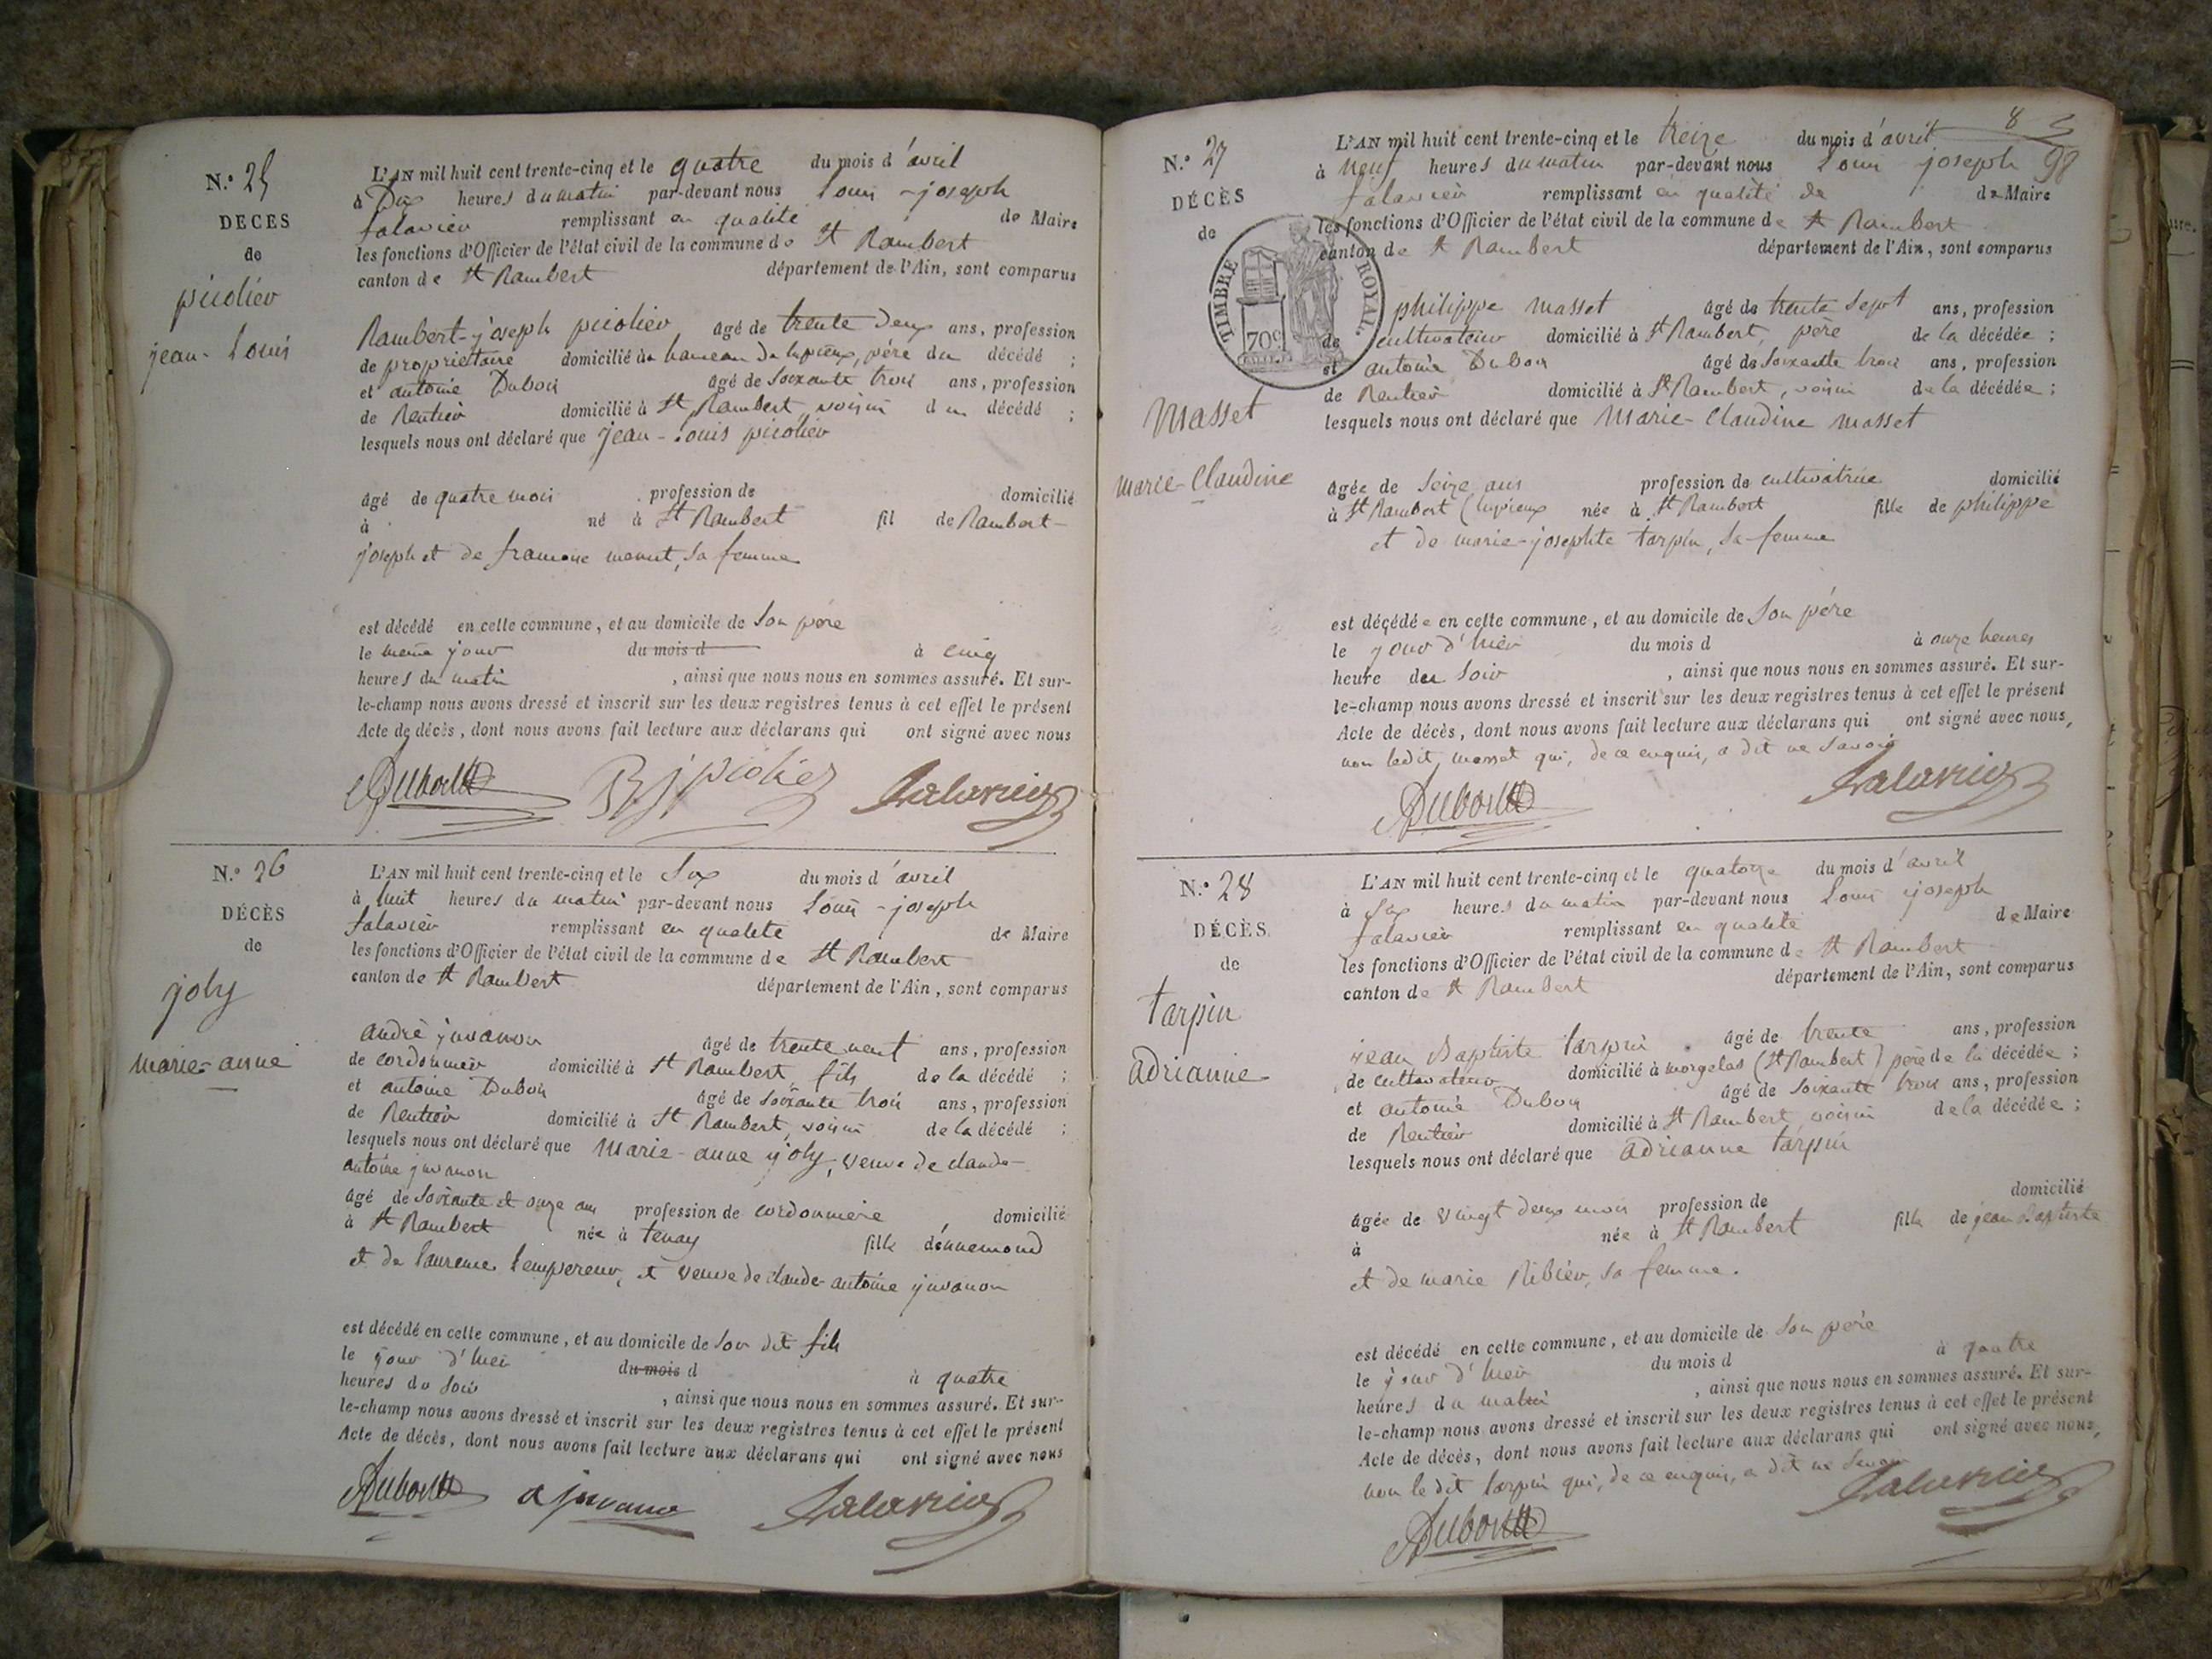 N.° 25
DECES
de
picolier
jean-Louis
L'AN mil huit cent trente-cinq et le quatre du mois d'avril
à Dix heures du matin par-devant nous Louis-joseph
falavier remplissant en qualité de Maire
les fonctions d'Officier de l'état civil de la commune de St Rambert
canton de St Rambert département de l'Ain, sont comparus
Rambert-joseph picolier âgé de trente Deux ans, profession
de propriétaire domicilié au hameau de lupieux, père du décédé ;
et antoine Dubois âgé de Soixante trois ans, profession
de Rentier domicilié à St Rambert voisin du décédé ;
lesquels nous ont déclaré que jean-Louis picolier
âgé de quatre mois profession de domicilié
à né à St Rambert fil de Rambert-
joseph et de sa femme
est décédé en cette commune, et au domicile de Son père
le même jour du mois d à cinq
heures du matin , ainsi que nous nous en sommes assuré. Et sur-
le-champ nous avons dressé et inscrit sur les deux registres tenus à cet effet le présent
Acte de décès, dont nous avons fait lecture aux déclarans qui ont signé avec nous
Dubois R j picolier falavier
N.° 26
DÉCÈS
de
joly
marie-anne
L'AN mil huit cent trente-cinq et le Six du mois d'avril
à huit heures du matin par-devant nous Louis-joseph
falavier remplissant en qualité de Maire
les fonctions d'Officier de l'état civil de la commune de St Rambert
canton de St Rambert département de l'Ain, sont comparus
andré juvanon âgé de trente neuf ans, profession
de cordonnier domicilié à St Rambert fils de la décédé ;
et antoine Dubois âgé de Soixante trois ans, profession
de Rentier domicilié à St Rambert, voisin de la décédé ;
lesquels nous ont déclaré que Marie-anne joly, veuve de claude-
antoine juvanon
âgé de Soixante et onze ans profession de cordonnière domicilié
à St Rambert née à tenay fille dennemond
et de laurence lempereur, et veuve de claude antoine juvanon
est décédé en cette commune, et au domicile de Son dit fils
le jour d'hier du mois d à quatre
heures du Soir , ainsi que nous nous en sommes assuré. Et sur-
le-champ nous avons dressé et inscrit sur les deux registres tenus à cet effet le présent
Acte de décès, dont nous avons fait lecture aux déclarans qui ont signé avec nous
Dubois a juvanon falavier
8
98
N.° 27
DÉCÈS
de
TIMBRE ROYAL.
70c
Masset
marie-Claudine
L'AN mil huit cent trente-cinq et le treize du mois d'avril
à neuf heures du matin par-devant nous Louis joseph
falavier remplissant en qualité de de Maire
les fonctions d'Officier de l'état civil de la commune de St Rambert
canton de St Rambert département de l'Ain, sont comparus
philippe masset âgé de trente Sept ans, profession
de cultivateur domicilié à St Rambert, père de la décédée ;
et antoine Dubois âgé de Soixante trois ans, profession
de Rentier domicilié à St Rambert, voisin de la décédée ;
lesquels nous ont déclaré que Marie-Claudine masset
âgée de Seize ans profession de cultivatrice domicilié
à St Rambert (lupieux née à St Rambert fille de philippe
et de marie-josephte tarpin, Sa femme
est décédée en cette commune, et au domicile de Son père
le jour d'hier du mois d à onze heures
heure du Soir , ainsi que nous nous en sommes assuré. Et sur-
le-champ nous avons dressé et inscrit sur les deux registres tenus à cet effet le présent
Acte de décès, dont nous avons fait lecture aux déclarans qui ont signé avec nous,
non ledit masset qui, de ce enquis, a dit ne Savoir
Dubois falavier
N.° 28
DÉCÈS
de
tarpin
adrianne
L'AN mil huit cent trente-cinq et le quatorze du mois d'avril
à Six heures du matin par-devant nous Louis joseph
falavier remplissant en qualité de Maire
les fonctions d'Officier de l'état civil de la commune de St Rambert
canton de St Rambert département de l'Ain, sont comparus
jean Baptiste tarpin âgé de trente ans, profession
de cultivateur domicilié à morgelas (St Rambert) père de la décédée ;
et antoine Dubois âgé de Soixante trois ans, profession
de Rentier domicilié à St Rambert voisin de la décédée ;
lesquels nous ont déclaré que adrianne tarpin
âgée de vingt deux mois profession de domicilié
à née à St Rambert fille de jean Baptiste
et de marie Ribier, Sa femme.
est décédé en cette commune, et au domicile de Son père
le jour d'hier du mois d à quatre
heures du matin , ainsi que nous nous en sommes assuré. Et sur-
le-champ nous avons dressé et inscrit sur les deux registres tenus à cet effet le présent
Acte de décès, dont nous avons fait lecture aux déclarans qui ont signé avec nous,
non le dit tarpin qui, de ce enquis, a dit ne Savoir
Dubois falavier